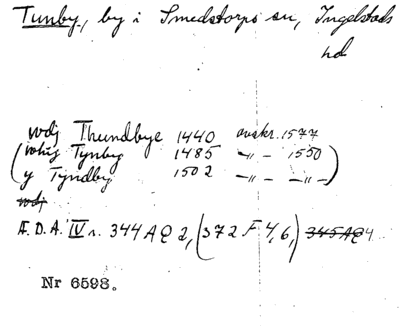 Tunby, by i Smedstorps sn, Ingelstads
hd
wdj Thundbye 1440 avskr. 1577
(whij Tynby 1485 -"- 1550
y Tyndby 1502 -"- -"-)
wdj
Æ.D.A. IV s. 344 A Q 2, (372 F 4, 6,) 345 A Q 4.
Nr 6598.